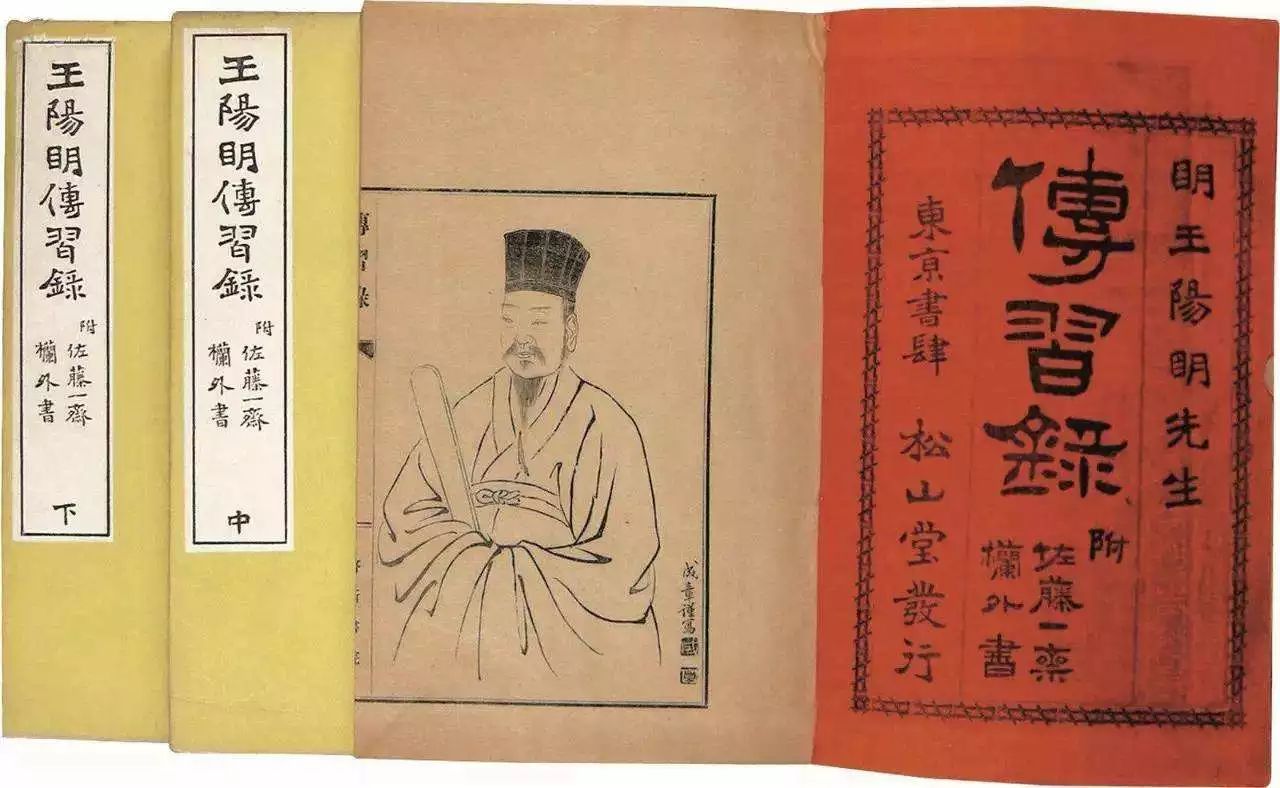 明王陽明先生
傳習錄
附
佐藤一齋
欄外書
東京書肆 松山堂發行
成章謹寫
傳習錄
王陽明傳習錄
附
佐藤一齋
欄外書
中
王陽明傳習錄
附
佐藤一齋
欄外書
下